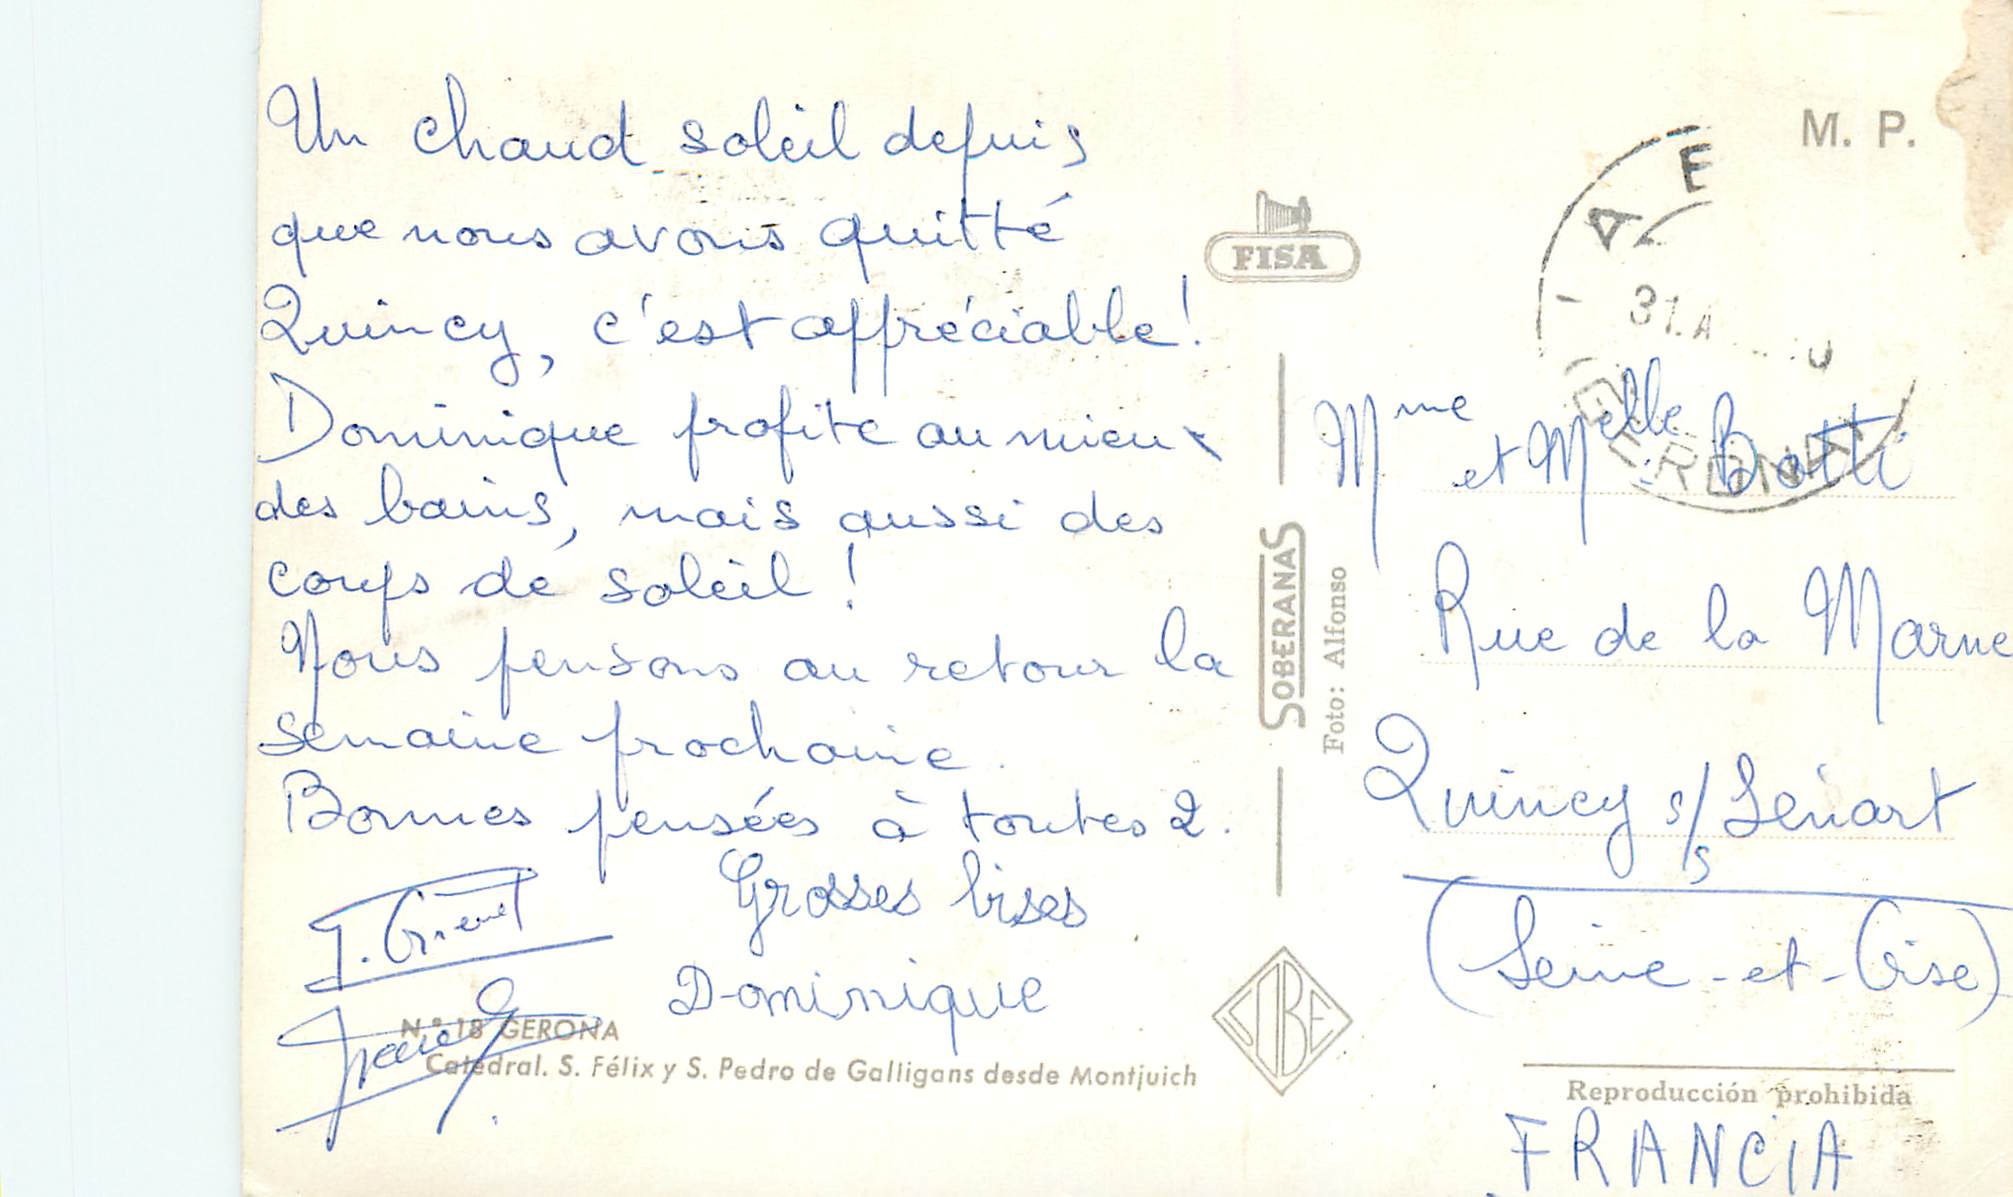 Un chaud soleil depuis
que nous avons quitté
Quincy, c'est appréciable!
Dominique profite au mieux
des bains, mais aussi des
coups de soleil !
Nous pensons au retour la
semaine prochaine.
Bonnes pensées à toutes 2.
Grosses bises
Dominique
Nº 18 GERONA
Catedral. S. Félix y S. Pedro de Galligans desde Montjuich
FISA
SOBERANAS
Foto: Alfonso
M. P.
31.A
GERONA
Mme et Melle Botti
Rue de la Marne
Quincy s/s Sénart
(Seine-et-Oise)
Reproducción prohibida
FRANCIA